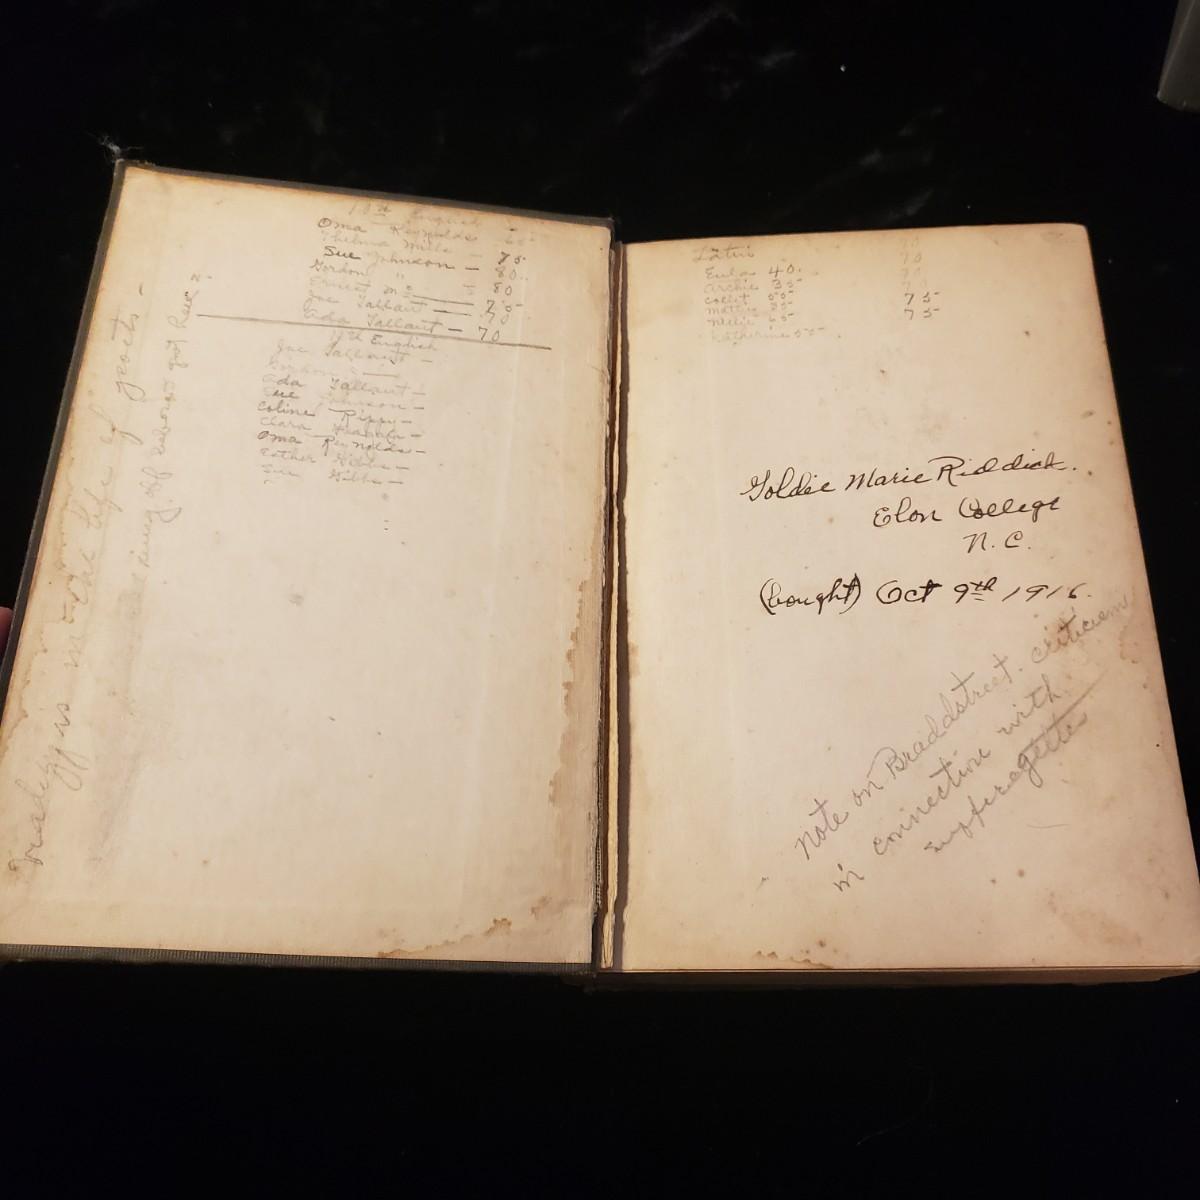 10th English
Oma Reynolds 65
Thelma Mills - 75
Sue Johnson - 80
Gordon " 80
Ernest Mc 75
Joe Tallant 70
Ada Tallant - 70
11th English
Joe Tallant -
Gordon
Ada Tallant -
Sue Johnson -
Coline Rippy -
Clara
Oma Reynolds -
Esther Gibbs -
Sue Gibbs -
is in the life of
Latin
Eula 40
Archie 35
Collet 55
Mattie 35
Nellie 65
Katherine 55
70
70
75
75
Goldie Marie Riddick.
Elon College
N.C.
(bought) Oct 9th 1916.
Note on Braddstreet. criticism
in connection with
suffragettes